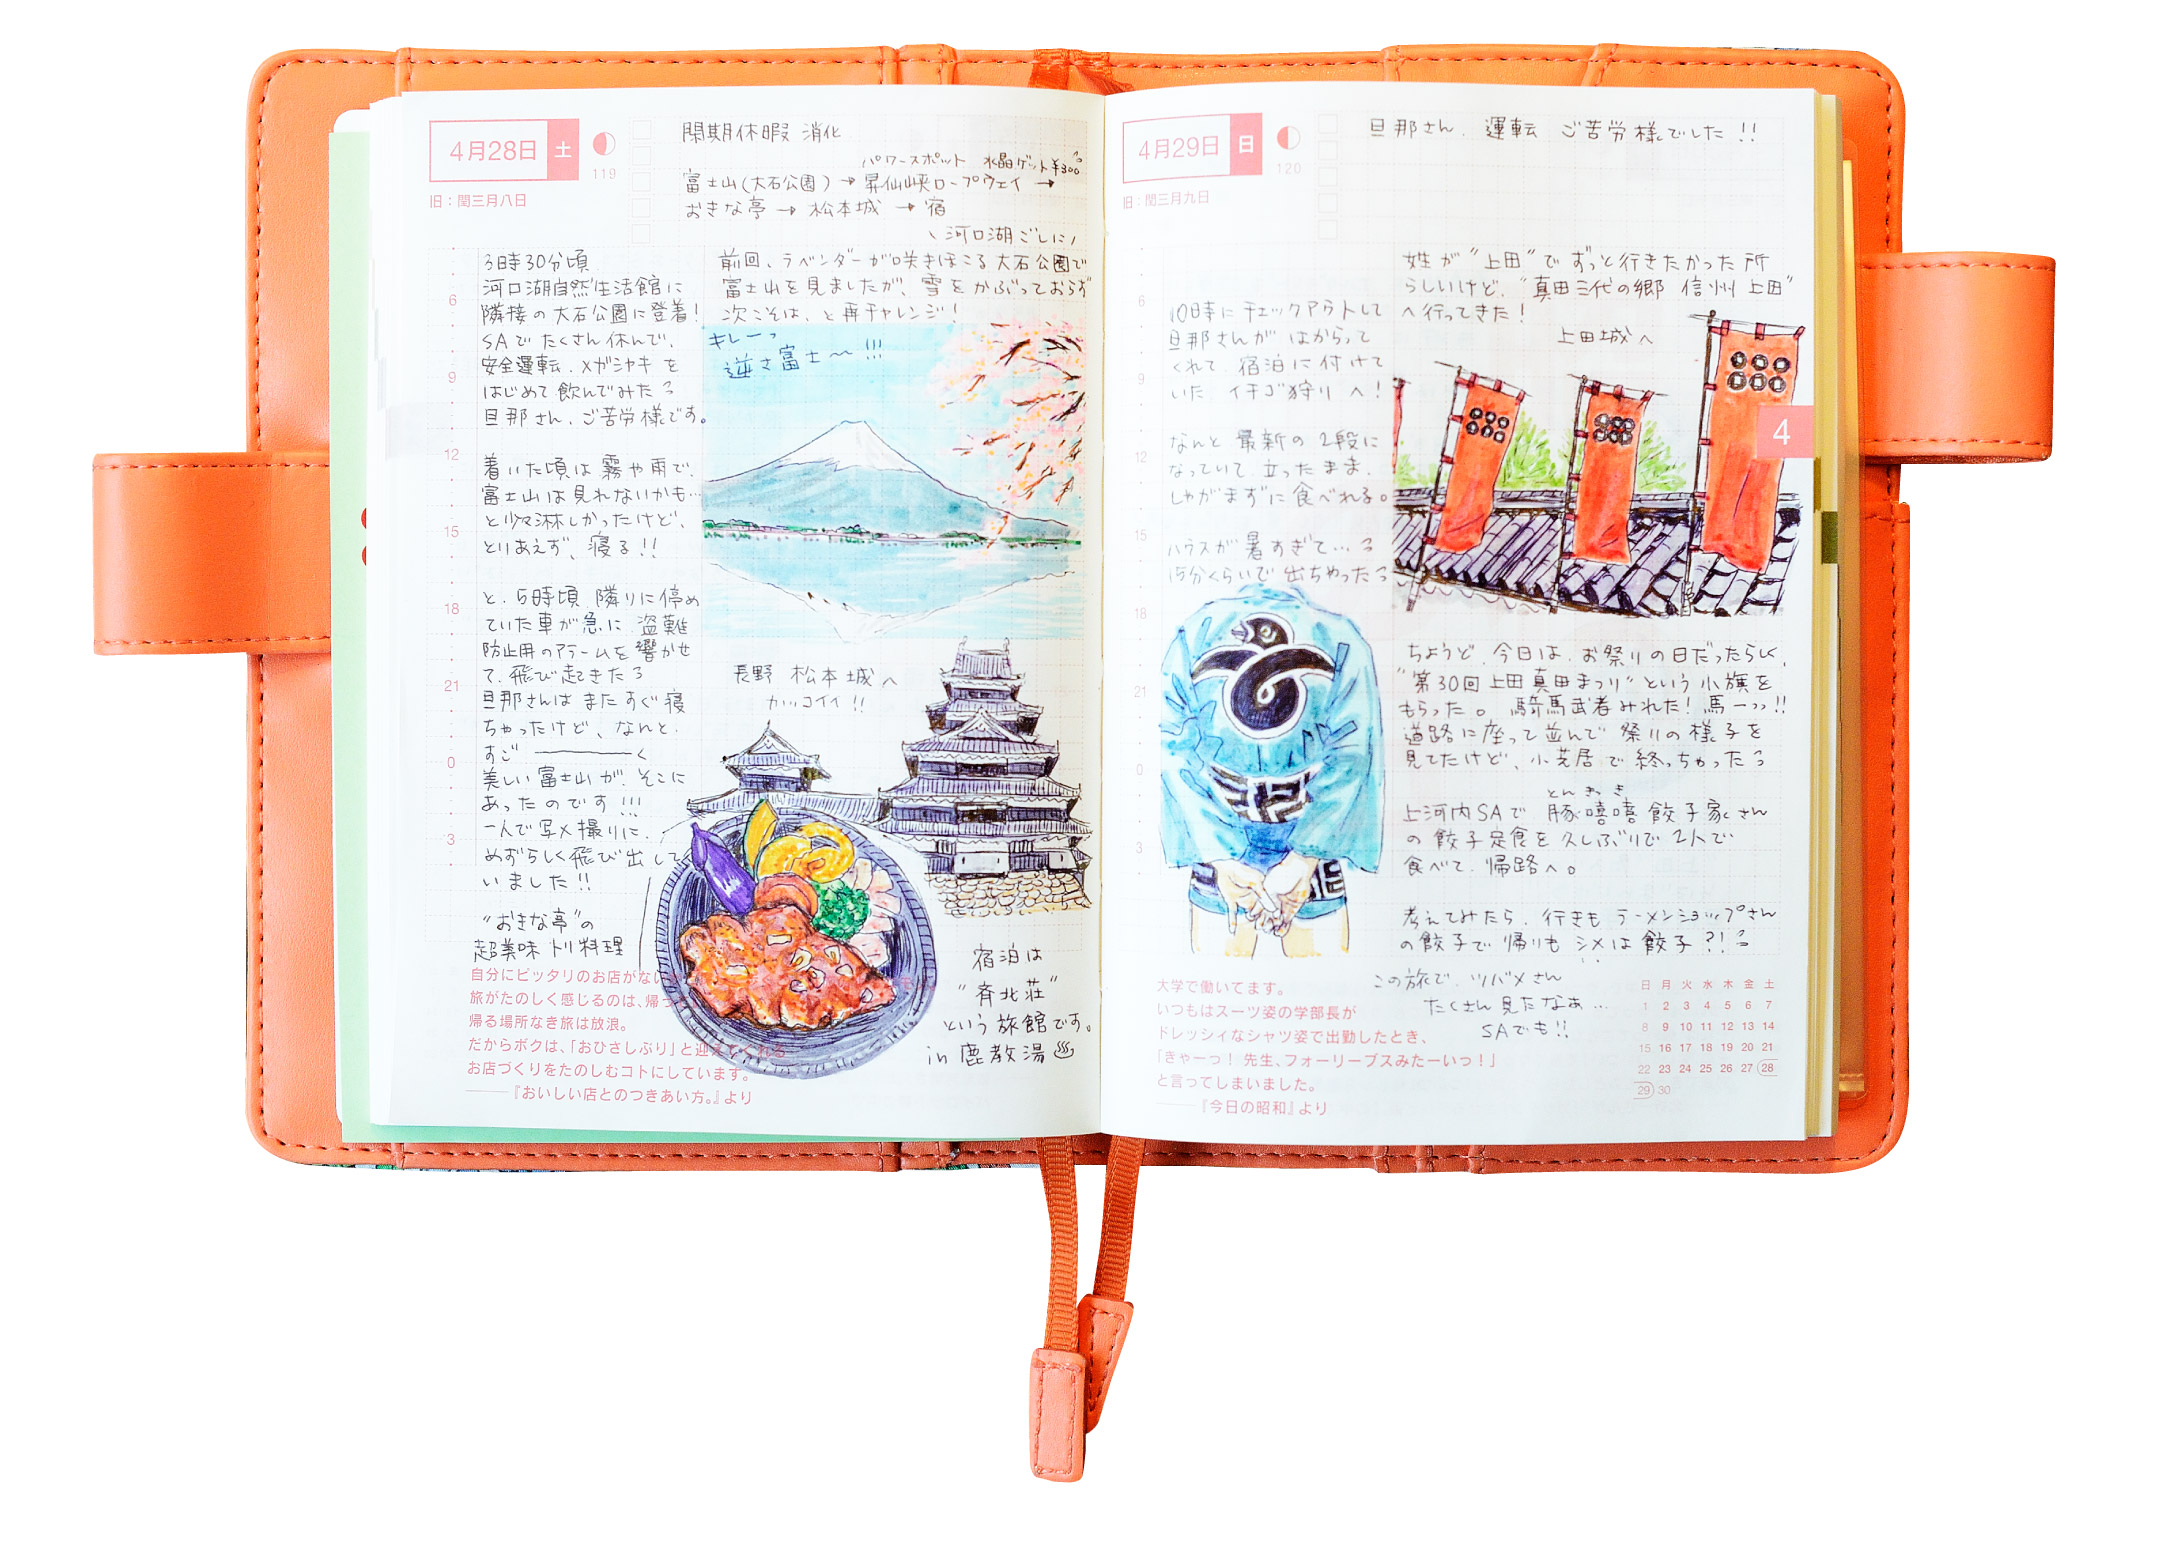 4月28日 土
119
旧：閏三月八日
閑期休暇 消化
パワースポット 水晶ゲット¥300
富士山(大石公園)→昇仙峡ロープウェイ→
おきな亭→松本城→宿
河口湖ごしに
3時30分頃
河口湖自然生活館に
隣接の大石公園に登着!
SAでたくさん休んで、
安全運転.メガシャキを
はじめて飲んでみた
旦那さん、ご苦労様です。
着いた頃は霧や雨で、
富士山は見れないかも…
と少々淋しかったけど、
とりあえず、寝る!!
と、5時頃 隣りに停め
ていた車が急に 盗難
防止用のアラームを響かせ
て、飛び起きた
旦那さんはまたすぐ寝
ちゃったけど、なんと、
すご――――く
美しい富士山が、そこに
あったのです!!!
一人で写メ撮りに、
めずらしく飛び出して
いました!!
"おきな亭"の
超美味トリ料理
前回、ラベンダーが咲きほこる大石公園で
富士山を見ましたが、雪をかぶっておらず
次こそは、と再チャレンジ!
キレーっ
逆さ富士〜!!!
長野 松本城へ
カッコイイ!!
宿泊は
"斉北荘"
という旅館です。
in 鹿教湯♨
6
9
12
15
18
21
0
3
自分にピッタリのお店がない
旅がたのしく感じるのは、帰っ
帰る場所なき旅は放浪。
だからボクは、「おひさしぶり」と迎えてくれる
お店づくりをたのしむコトにしています。
――『おいしい店とのつきあい方。』より
4月29日 日
120
旧：閏三月九日
旦那さん、運転 ご苦労様でした!!
10時にチェックアウトして
旦那さんが はからって
くれて 宿泊に付けて
いた イチゴ狩り へ!
なんと 最新の 2段に
なっていて、立ったまま、
しゃがまずに食べれる。
ハウスが暑すぎて…
15分くらいで出ちゃった
姓が"上田"で ずっと行きたかった所
らしいけど、"真田三代の郷 信州上田"
へ行ってきた!
上田城へ
4
ちょうど、今日は、お祭りの日だったらしく、
"第30回上田真田まつり"という小旗を
もらった。 騎馬武者みれた!馬ーっっ!!
道路に座って並んで 祭りの様子を
見てたけど、小芝居で終っちゃった
とんきっき
上河内SAで 豚嘻嘻 餃子家さん
の餃子定食を久しぶりで2人で
食べて、帰路へ。
考えてみたら、行きも ラーメンショップさん
の餃子で帰りも シメは餃子?!
この旅で、ツバメさん
たくさん見たなぁ…
SAでも!!
6
9
12
15
18
21
0
3
大学で働いてます。
いつもはスーツ姿の学部長が
ドレッシィなシャツ姿で出勤したとき、
「きゃーっ! 先生、フォーリーブスみたーいっ!」
と言ってしまいました。
――『今日の昭和』より
日 月 火 水 木 金 土
1 2 3 4 5 6 7
8 9 10 11 12 13 14
15 16 17 18 19 20 21
22 23 24 25 26 27 28
29 30